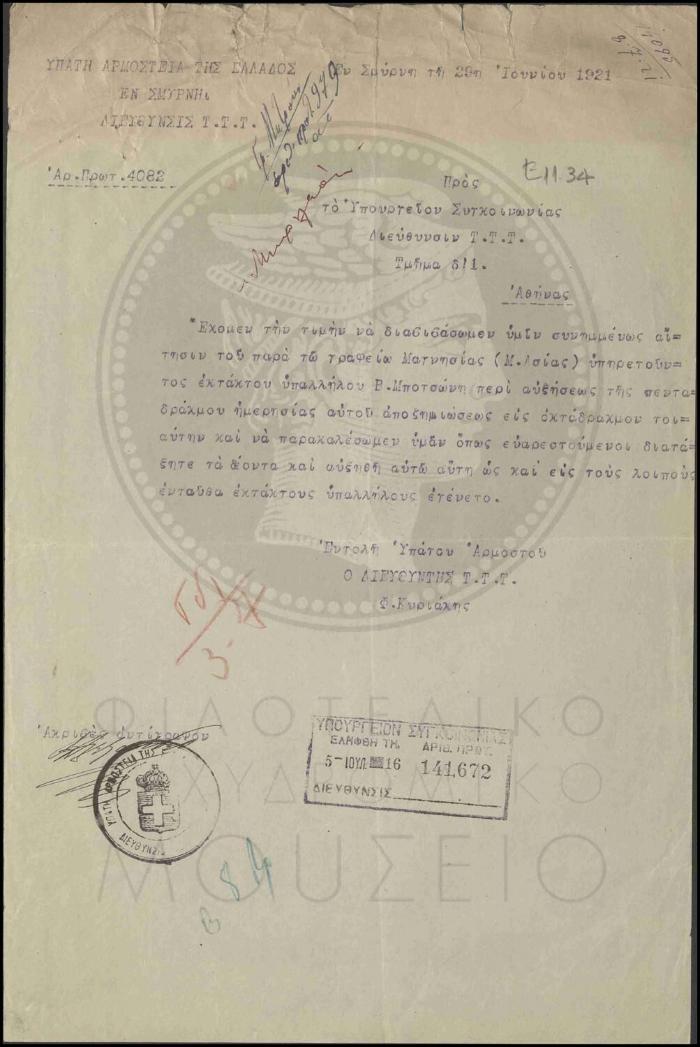 ΥΠΑΤΗ ΑΡΜΟΣΤΕΙΑ ΤΗΣ ΕΛΛΑΔΟΣ
ΕΝ ΣΜΥΡΝΗι
ΔΙΕΥΘΥΝΣΙΣ Τ.Τ.Τ.
Ἐν Σμύρνῃ τῇ 29ῃ Ἰουνίου 1921
Ἀρ.Πρωτ.4082
Ε11.34
Πρὸς
τὸ Ὑπουργεῖον Συγκοινωνίας
Διεύθυνσιν Τ.Τ.Τ.
Τμῆμα δ/1.
Ἀθήνας
Ἔχομεν τὴν τιμὴν νὰ διαβιβάσωμεν ὑμῖν συνημμένως αἴ=
τησιν τοῦ παρὰ τῷ γραφείῳ Μαγνησίας (Μ.Ἀσίας) ὑπηρετοῦν=
τος ἐκτάκτου ὑπαλλήλου Β.Μποτσώνη περὶ αὐξήσεως τῆς πεντα=
δράχμου ἡμερησίας αὐτοῦ ἀποζημιώσεως εἰς ὀκτάδραχμον τοι=
αύτην καὶ νὰ παρακαλέσωμεν ὑμᾶν ὅπως εὐαρεστούμενοι διατά=
ξητε τὰ δέοντα καὶ αὐξηθῇ αὐτῷ αὕτη ὡς καὶ εἰς τοὺς λοιποὺς
ἐνταῦθα ἐκτάκτους ὑπαλλήλους ἐγένετο.
Ἐντολῇ Ὑπάτου Ἁρμοστοῦ
Ο ΔΙΕΥΘΥΝΤΗΣ Τ.Τ.Τ.
Φ.Κυριάκης
3
Ἀκριβὲς ἀντίγραφον
ΥΠΑΤΗ ΑΡΜΟΣΤΕΙΑ ΤΗΣ
ΔΙΕΥΘΥΝΣΙΣ
ΥΠΟΥΡΓΕΙΟΝ ΣΥΓΚΟΙΝΩΝΙΑΣ
ΕΛΗΦΘΗ ΤΗ, ΑΡΙΘ. ΠΡΩΤ.
5- ΙΟΥΛ 16 141,672
ΔΙΕΥΘΥΝΣΙΣ
ΦΙΛΟΤΕΛΙΚΟ
ΤΑΧΥΔΡΟΜΙΚΟ
ΜΟΥΣΕΙΟ